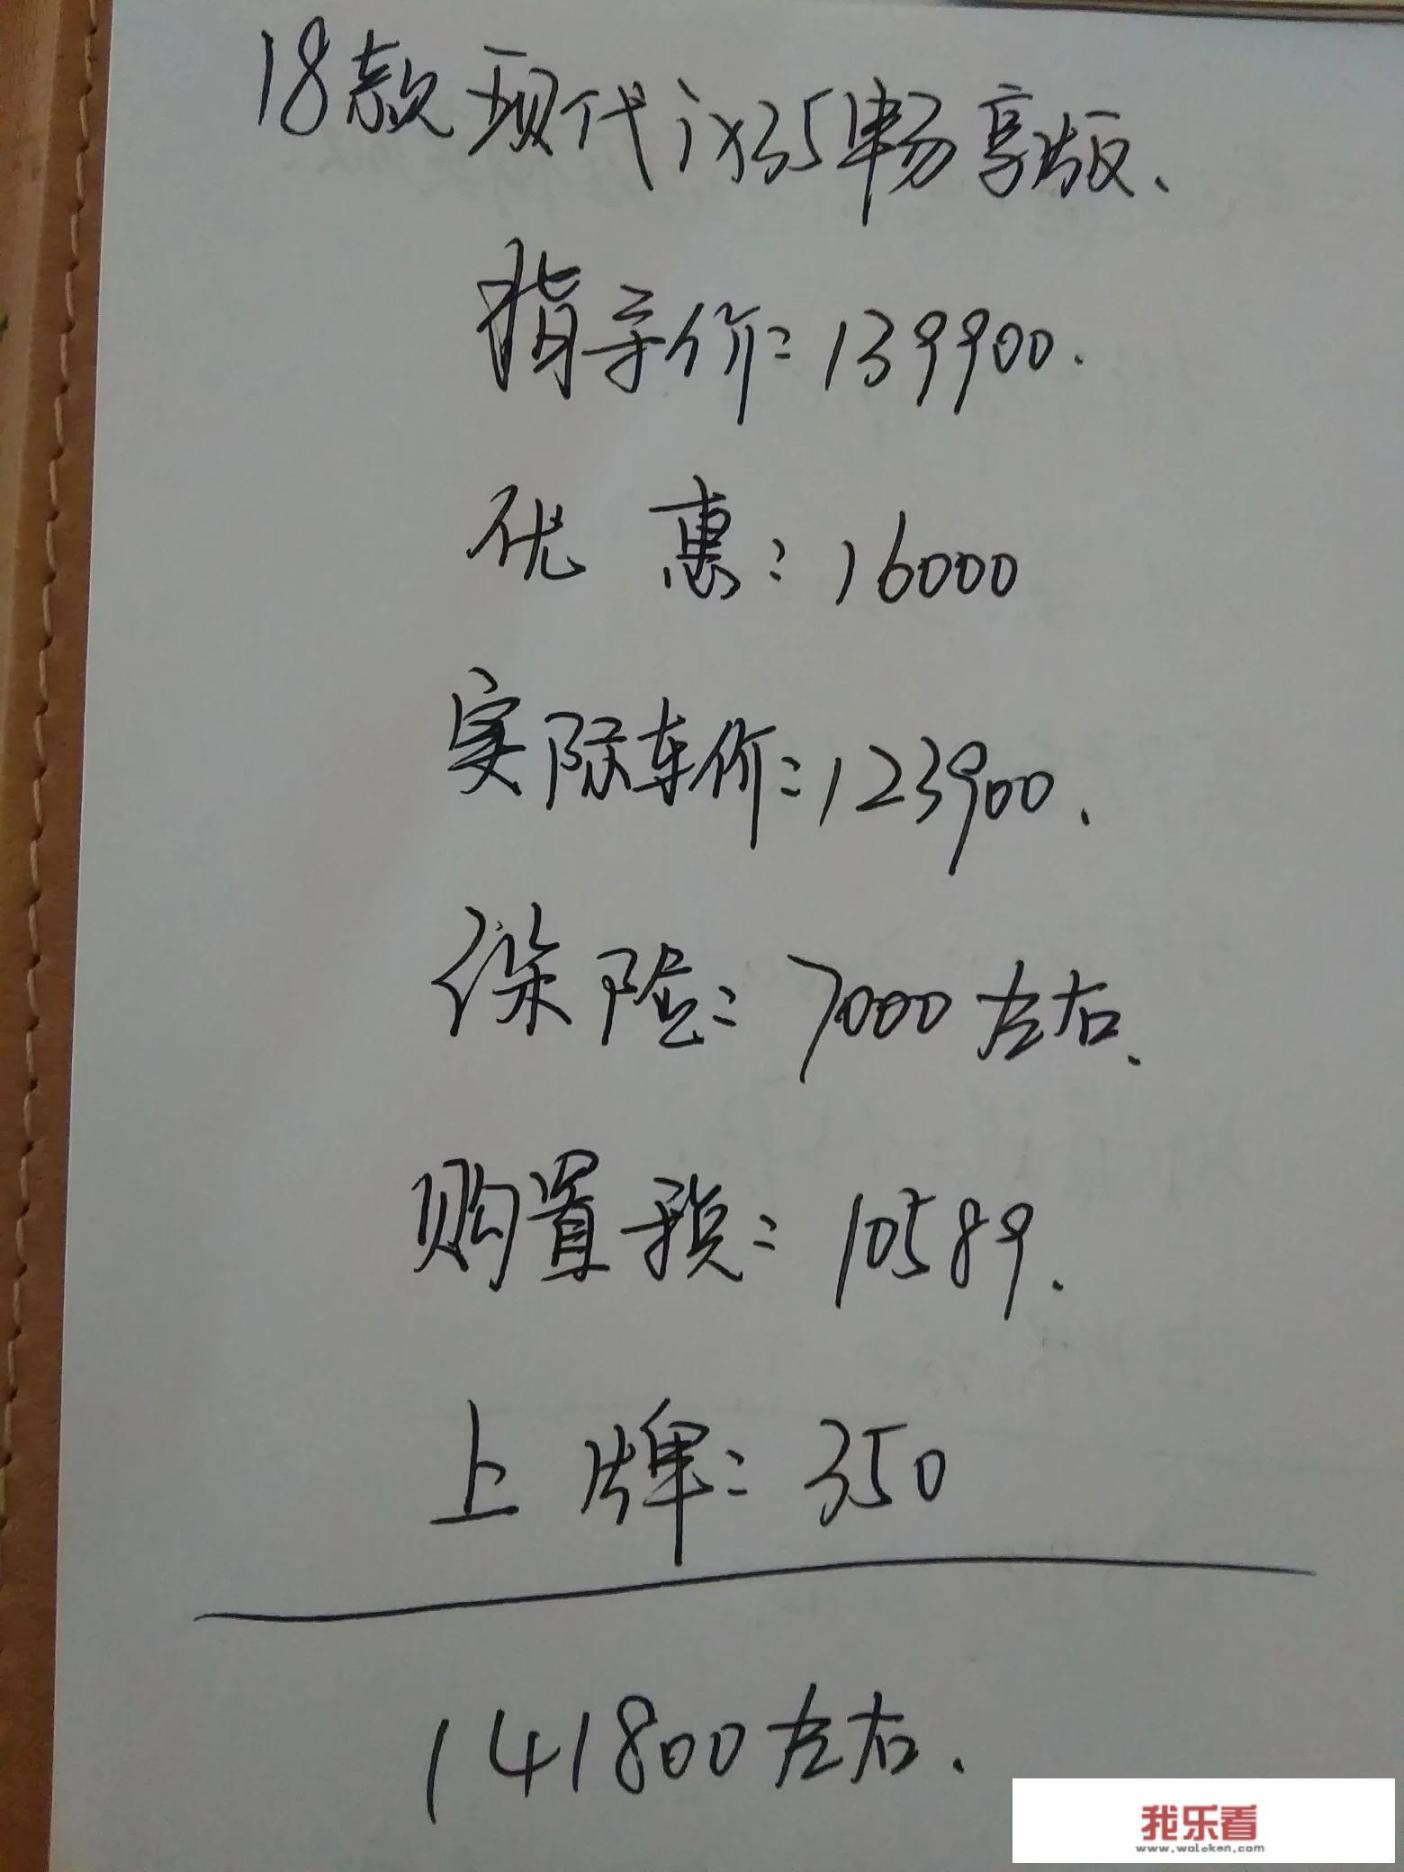 18款现代ix35畅享版、
指导价:139900.
优 惠:16000
实际车价:123900、
保险:7000左右、
购置税:10589、
上 牌:350
141800左右、
我乐看
www.woleken.com